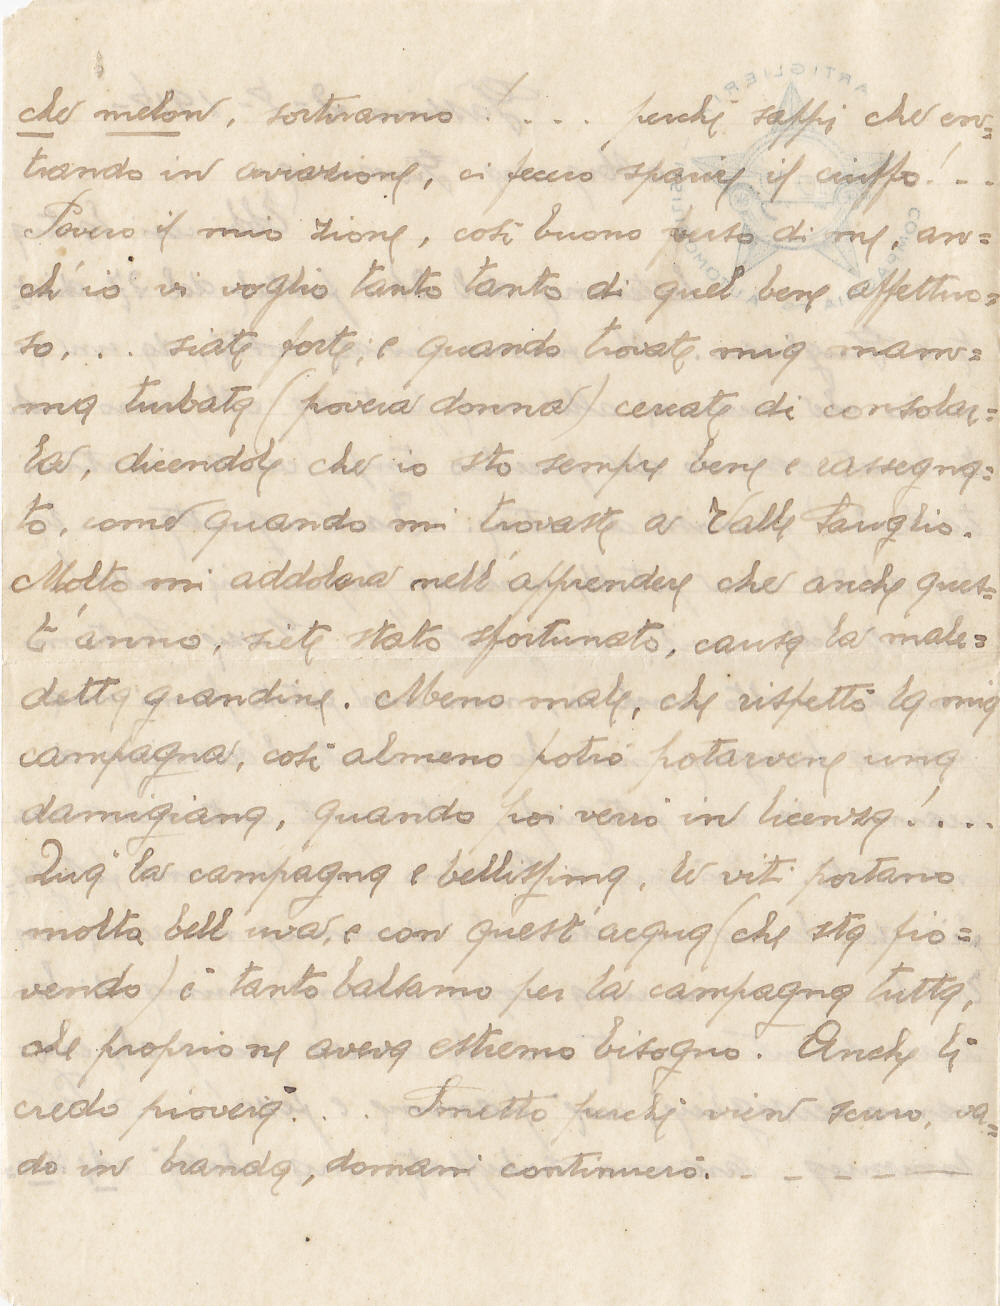 che melon, sortiranno!.... perchè sappi che en=
trando in aviazione, ci fecero sparire il ciuffo!...
Povero il mio zione, così buono verso di me, an=
ch'io vi voglio tanto tanto di quel bene affettuo=
so,... siate forte, e quando trovate mia mam=
ma turbata (povera donna) cercate di consolar=
la, dicendole che io sto sempre bene e rassegna=
to, come quando mi trovaste a Valle
Molto mi addolora nell'apprendere che anche ques=
t'anno, siete stato sfortunato, causa la male=
detta grandine. Meno male, che rispettò la mia
campagna, così almeno potrò potarvene una
damigiana, quando poi verrò in licenza!....
Qua la campagna e bellissima, le viti portano
molta bell uva, e con quest'acqua (che sta pio=
vendo) è tanto balsamo per la campagna tutta,
che proprio ne aveva estremo bisogno. Anche lì
credo pioverà... Smetto perchè vien scuro, va=
do in branda, domani continuerò. - - - -
ARTIGLIERIA
COMPAGNIA